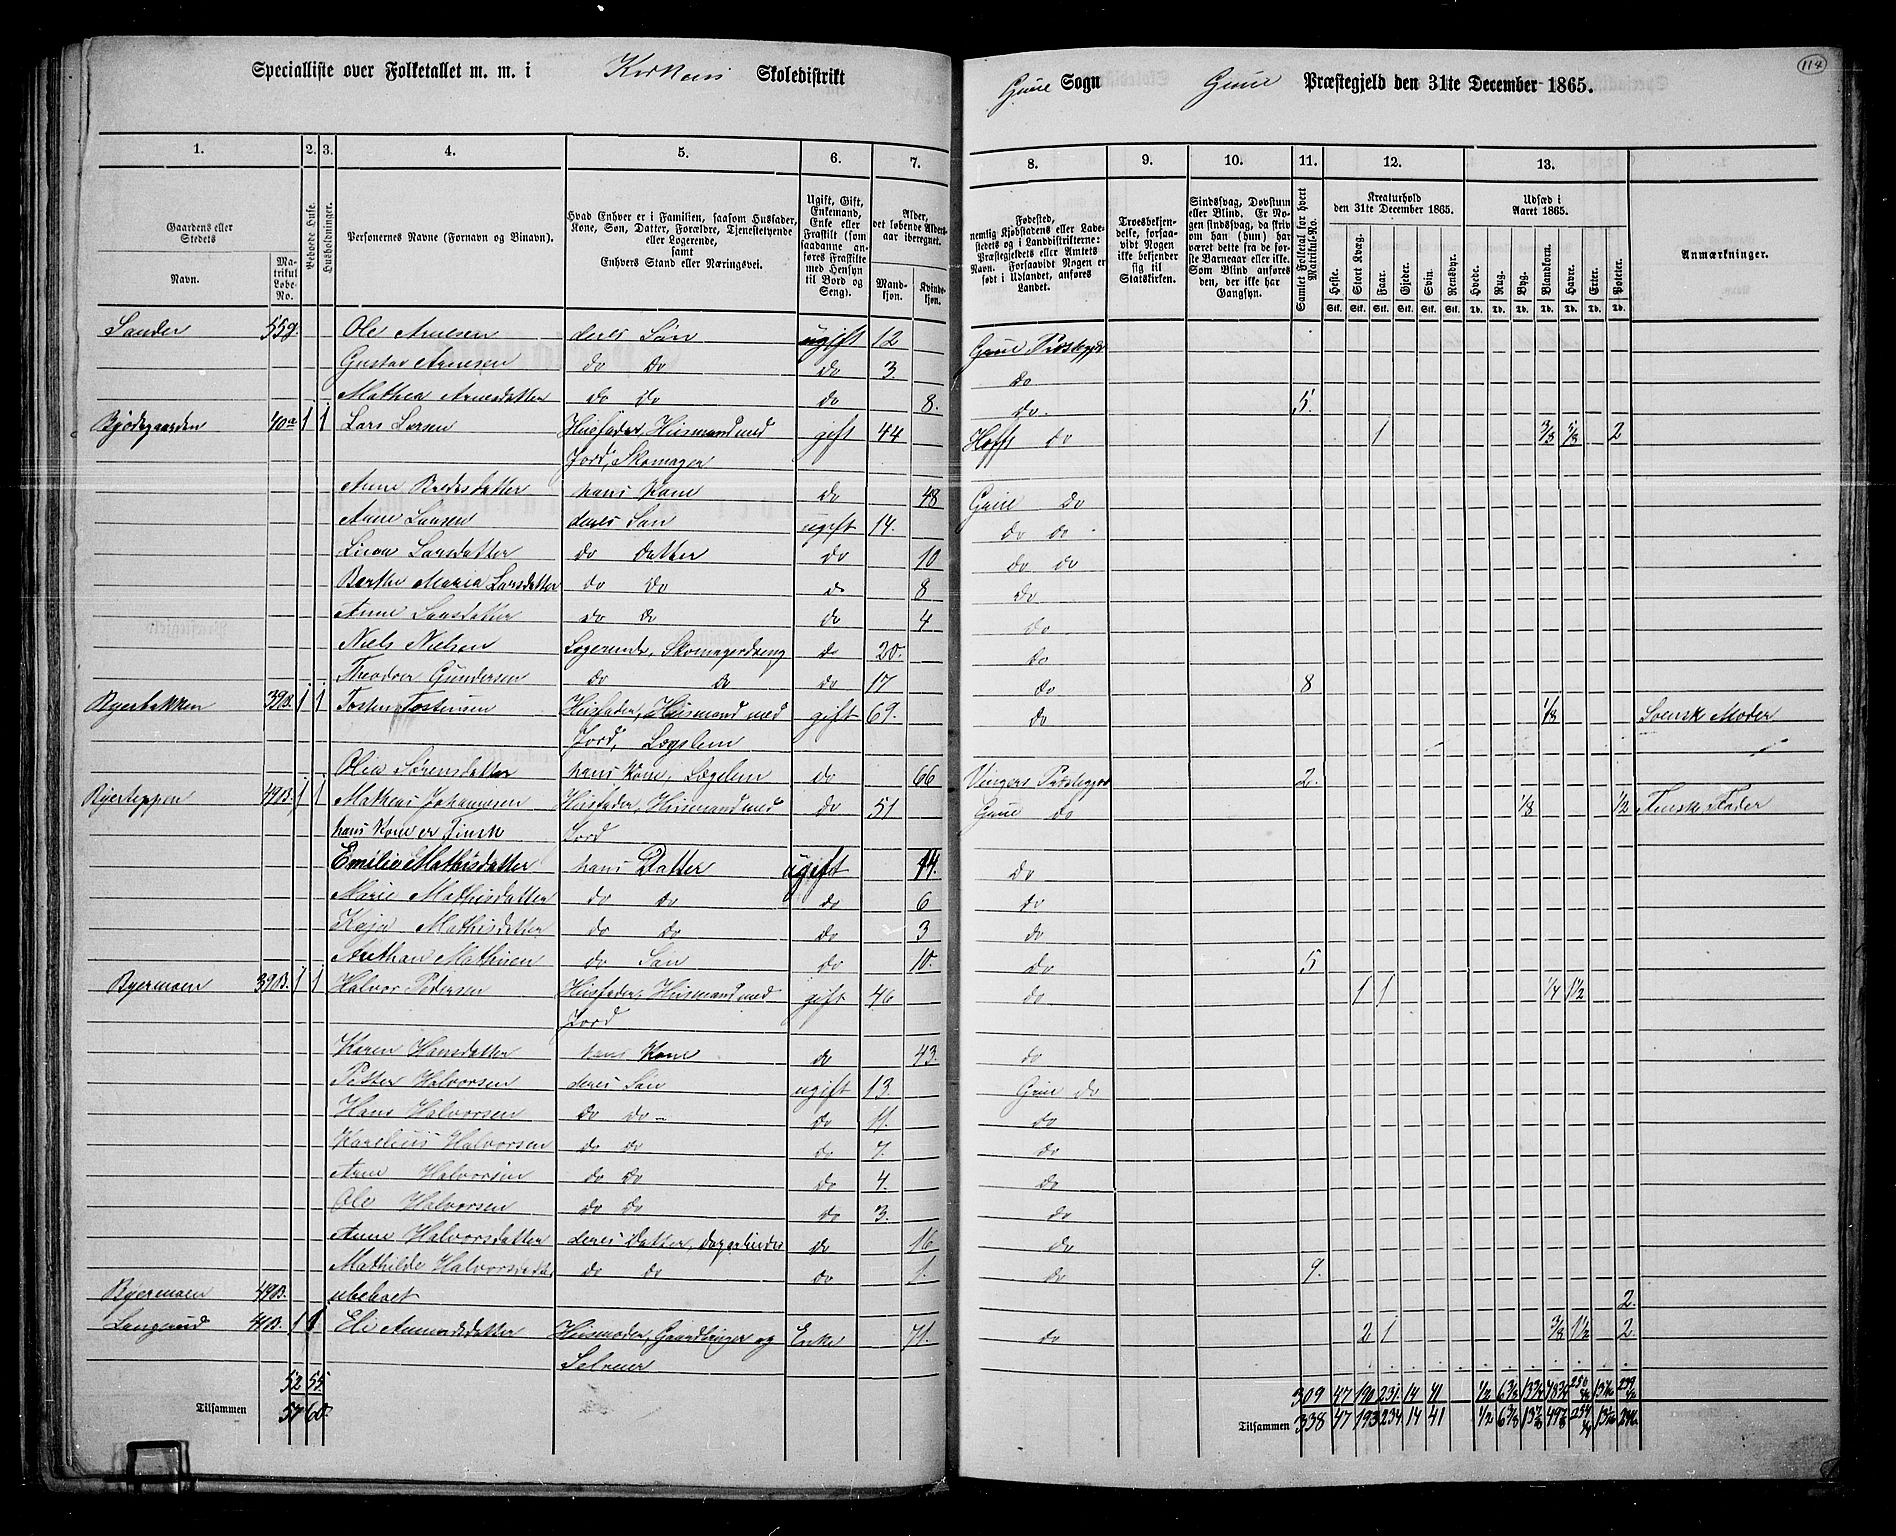 Specialliste over Folketallet m. m. i Kirkens Skoledistrikt
Grue Sogn Grue Præstegjeld den 31te December 1865.
114
1. 2. 3. 4. 5. 6. 7.
8. 9. 10. 11. 12. 13.
Gaardens eller Stedets
Navn.
Matrikul Løbe-No.
Beboede Huse.
Husholdninger.
Personernes Navne (Fornavn og Binavn).
Hvad Enhver er i Familien, saasom Husfader, Kone, Søn, Datter, Forældre, Tjenestetyende eller Logerende,
samt
Enhvers Stand eller Næringsvei.
Ugift, Gift, Enkemand, Enke eller Fraskilt (som saadanne anføres Fraskilte med Hensyn til Bord og Seng).
Alder, det løbende Aldersaar iberegnet.
Mandkjøn.
Kvindekjøn.
Fødested,
nemlig Kjøbstadens eller Ladestedets og i Landdistrikterne: Præstegjeldets eller Amtets Navn. Forsaavidt Nogen er født i Udlandet, anføres Landet.
Troesbekjendelse, forsaavidt Nogen ikke bekjender sig til Statskirken.
Sindssvag, Døvstum eller Blind. Er Nogen sindssvag, da skrives om han (hun) har været dette fra de første Barneaar eller ikke. Som Blind anføres den, der ikke har Gangsyn.
Samlet Folketal for hvert Matrikul-No.
Kreaturhold
den 31te December 1865.
Heste. Stort Kvæg. Faar. Gjeder. Svin. Rensdyr.
Stk. Stk. Stk. Stk. Stk. Stk.
Udsæd i
Aaret 1865.
Hvede. Rug. Byg. Blandkorn. Havre. Erter. Poteter.
Td. Td. Td. Td. Td. Td. Td.
Anmærkninger.
Sander 55g. Ole Arnesen deres Søn ugift 12 Grue Præstegjeld
Gustav Arnesen do do do 3. do
Mathea Arnesdatter do do do 8. do. 5.
Bjødegaarden 40a 1 1 Lars Larsen Husfader, Husmand med gift 44 Hoff do 1 3/8 5/8 2
Jord, Skomager
Anne Bredesdatter hans Kone do 48 Grue do
Arne Larsen deres Søn ugift 14. do do
Larsdatter do datter do 10 do do
Berthe Maria Larsdatter do do do 8 do
Anne Larsdatter do do do 4 do
Niels Nielsen Logerende, Skomagerdreng do 20. do
Theodor Gundersen do do do 17 do 8
Byerbakken 39B. 1 1 Tosten Tostensen Husfader, Husmand med gift 69. do 1/8 Svensk Moder
Jord, Lægslem
Olea Sørensdatter hans Kone, Lægslem do 66 Vingers Præstegjeld 2.
Byerteppen 49B. 1 1 Mathias Johannesen Husfader, Husmand med do 51 Grue do 1/8 1/2 Finsk Fader
hans Kone er Finsk Jord
Emilie Mathisdatter hans Datter ugift 14. do
Marie Mathisdatter do do do 6 do
Kaja Mathisdatter do do do 3 do
Mathisen do Søn do 10. do 5
Byermoen 39B. 1 1 Halvor Pedersen Husfader, Husmand med gift 46 do 1 1 1/4 1 1/2
Jord
Karen Hansdatter hans Kone do 43. do
Petter Halvorsen deres Søn ugift 13. Grue do
Hans Halvorsen do do do 11. do
Karelius Halvorsen do do do 7. do
Arne Halvorsen do do do 4. do
Ole Halvorsen do do do 3. do
Anne Halvorsdatter deres Datter, do 16 do
Mathilde Halvorsdatt. do do do 1. do 9.
Byermoen 49B. ubeboet 2.
Langerud 41B. 1 1 Eli Amundsdatter Husmoder, Gaardbruger og Enke 71. do 2 1 3/8 1 1/2 2.
Selveier
52 55 309 47 190 231 14 41 1/2
Tilsammen 57 60. Tilsammen 338 47 193 234 14 41 1/2